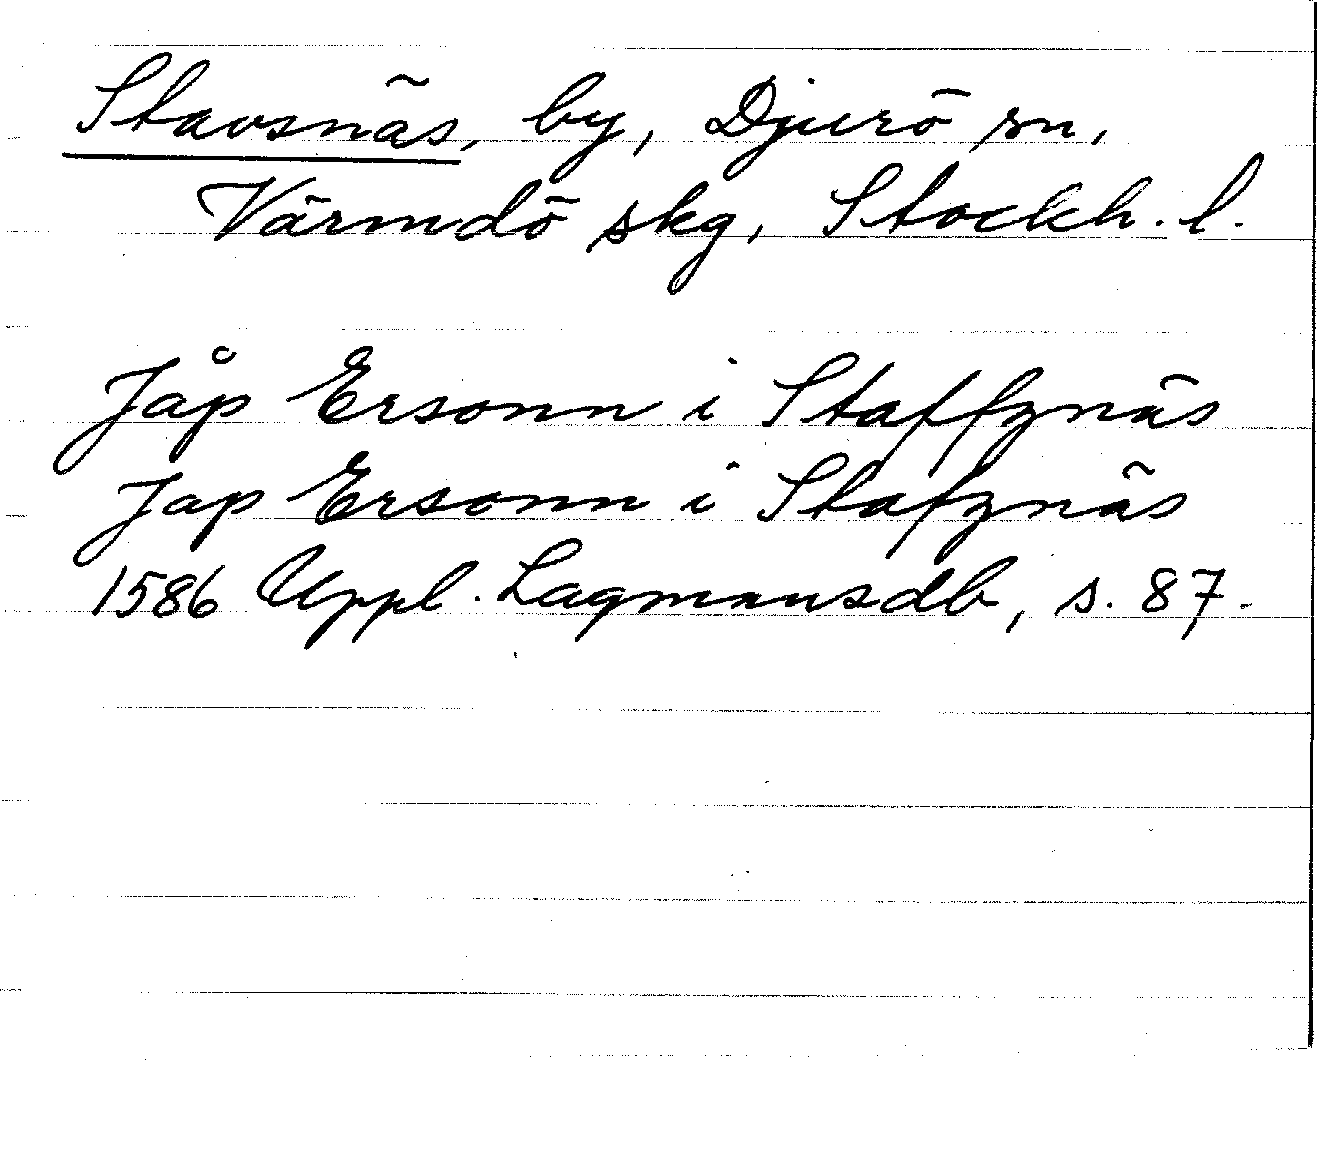 Stavsnäs, by, Djurö sn,
Värmdö skg, Stockh. l.
Jåp Ersonn i Staffznäs
Jap Ersonn i Stafznäs
1586 Uppl. Lagmansdb, s. 87.